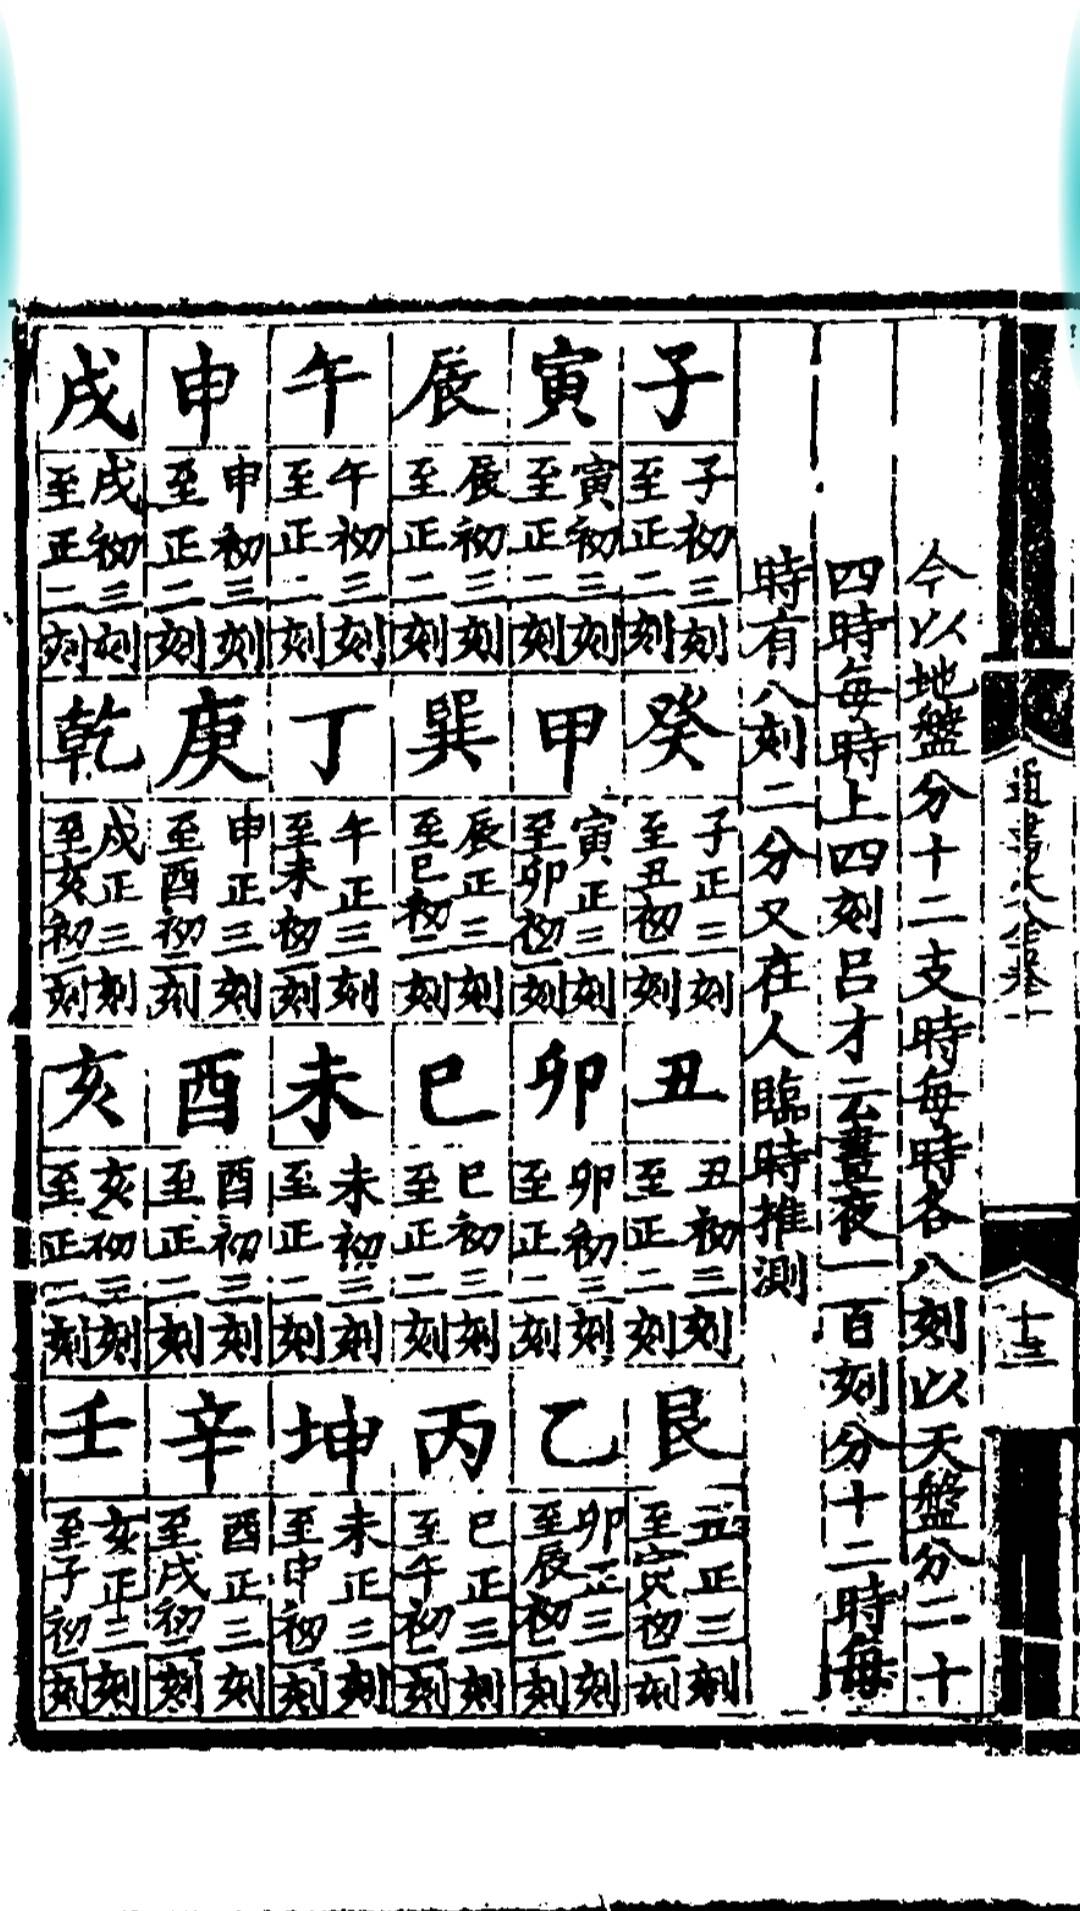 通書大全卷一
十三
今以地盤分十二支時每時各八刻以天盤分二十
四時每時上四刻呂才云晝夜一百刻分十二時每
時有八刻二分又在人臨時推測
子
子初三刻
至正二刻
癸
子正三刻
至丑初二刻
丑
丑初三刻
至正二刻
艮
丑正三刻
至寅初二刻
寅
寅初三刻
至正二刻
甲
寅正三刻
至卯初二刻
卯
卯初三刻
至正二刻
乙
卯正三刻
至辰初二刻
辰
辰初三刻
至正二刻
巽
辰正三刻
至巳初二刻
巳
巳初三刻
至正二刻
丙
巳正三刻
至午初二刻
午
午初三刻
至正二刻
丁
午正三刻
至未初二刻
未
未初三刻
至正二刻
坤
未正三刻
至申初二刻
申
申初三刻
至正二刻
庚
申正三刻
至酉初二刻
酉
酉初三刻
至正二刻
辛
酉正三刻
至戌初二刻
戌
戌初三刻
至正二刻
乾
戌正三刻
至亥初二刻
亥
亥初三刻
至正二刻
壬
亥正三刻
至子初二刻